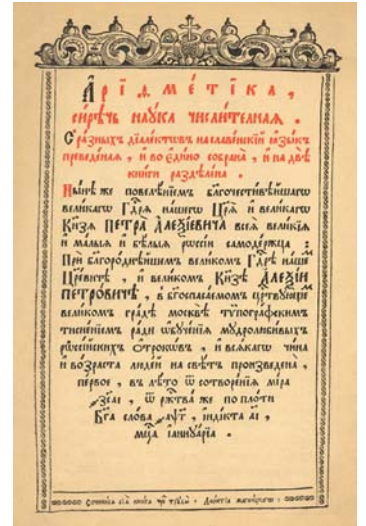 А҆риѳме́тїка,
сирѣ́чь наꙋ́ка числи́телнаѧ.
С̾ ра́зныхъ дїале́ктѡвъ на славе́нскїй ѧзы́къ
преведе́наѧ, и҆ во є҆ди́но собрана̀, и҆ на двѣ̀
кни́ги раздѣле́на.
Ны́нѣ же повелѣ́нїемъ бл҃гочести́вѣйшагѡ
вели́кагѡ Гдⷭ҇рѧ на́шегѡ Цр҃ѧ̀ и҆ вели́кагѡ
Кн҃зѧ ПЕТРА̀ АЛЕѮІ́ЕВИЧА всеѧ̀ вели́кїѧ
и҆ ма́лыѧ и҆ бѣ́лыѧ рѡссі́и самоде́ржца:
При бл҃горо́днѣйшемъ вели́комъ Гдⷭ҇рѣ на́шемъ
Цр҃е́вичѣ, и҆ вели́комъ Кн҃зѣ АЛЕѮІ́И
ПЕТРО́ВИЧѢ, в̾ бг҃оспаса́емомъ црⷭ҇твꙋ́ющемъ
вели́комъ гра́дѣ москвѣ̀ тѵпогра́фскимъ
тисне́нїемъ ра́ди ѡ҆бꙋче́нїѧ мꙋдролюби́выхъ
рѡссі́йскихъ ѻ҆́трокѡвъ, и҆ всѧ́кагѡ чи́на
и҆ во́зраста люде́й на свѣ́тъ произведена̀,
пе́рвое, въ лѣ́то ѿ сотворе́нїѧ мі́ра
҂зсаі, ѿ ржⷭ҇тва́ же по пло́ти
Бг҃а сло́ва ҂аѱг҃, і҆нді́кта аі҃,
мцⷭ҇а і҆аннꙋа́рїа.
Сочини́сѧ сїѧ̀ кни́га чрез̾ трꙋды̀ Лео́нтїѧ магни́цкагѡ